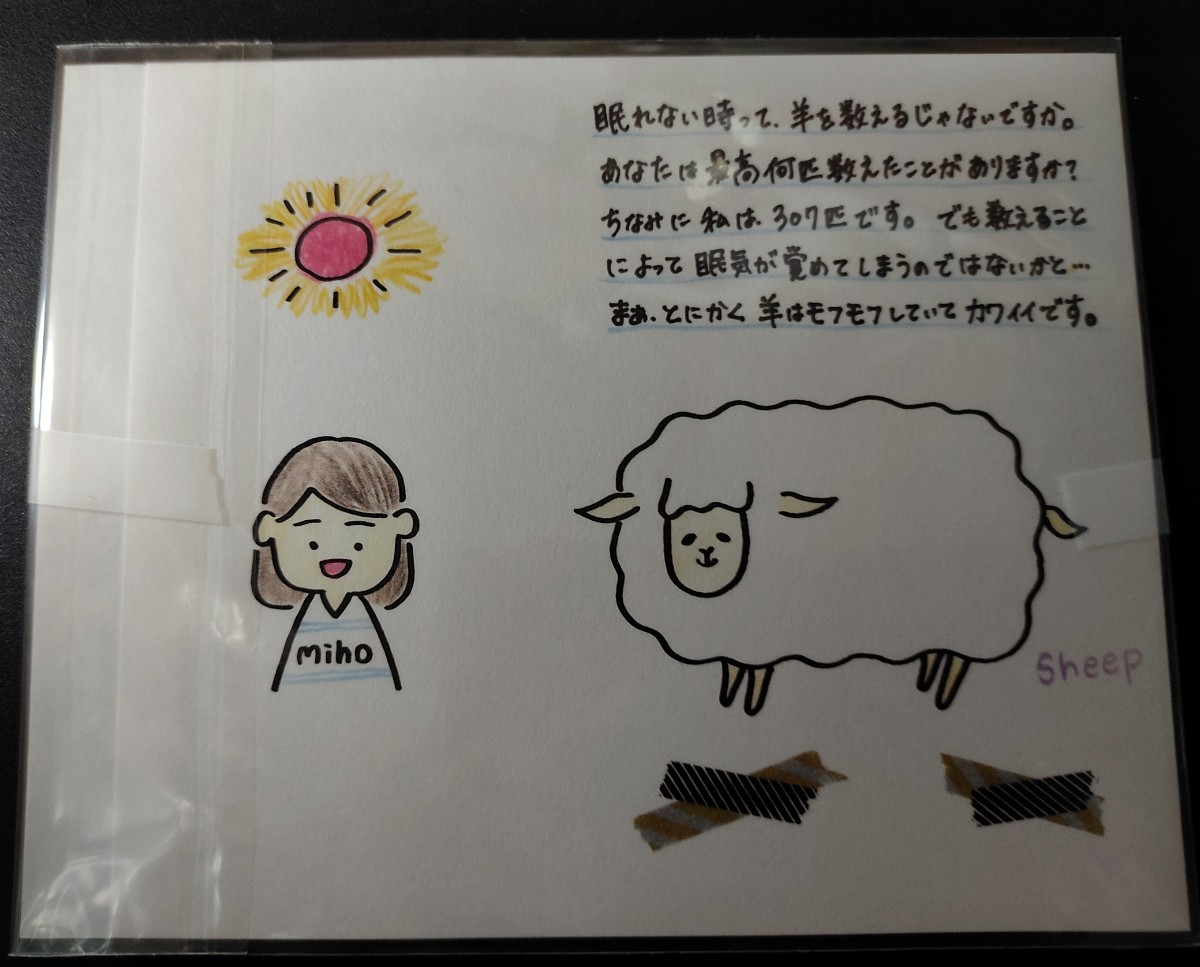 眠れない時って、羊を数えるじゃないですか。
あなたは最高何匹数えたことがありますか?
ちなみに私は、307匹です。でも数えること
によって眠気が覚めてしまうのではないかと…
まぁ、とにかく羊はモフモフしていてカワイイです。
miho
Sheep